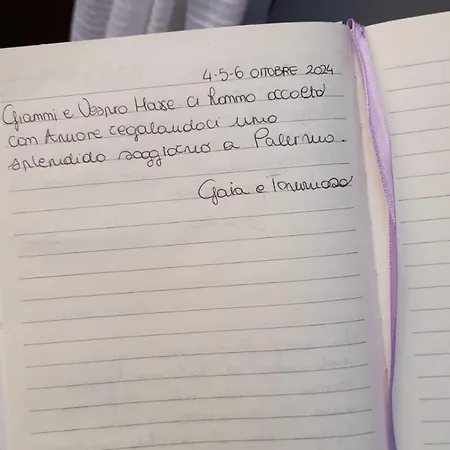 4-5-6 OTTOBRE 2024
Gianni e Vespro House ci hanno accolto
con Amore regalandoci uno
splendido soggiorno a Palermo.
Gaia e Tommaso